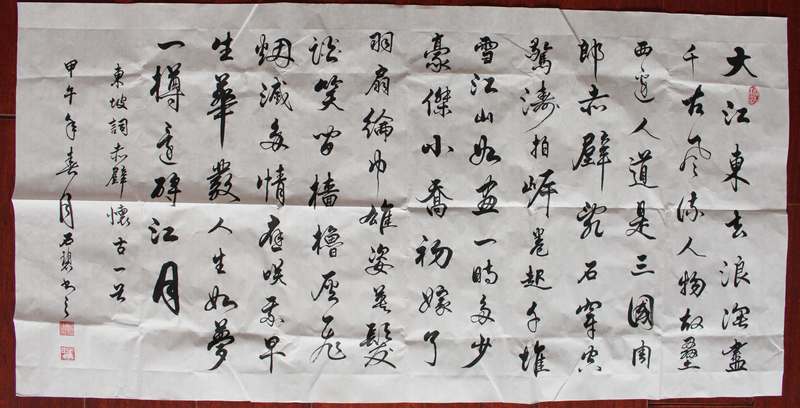 大江東去浪淘盡
千古風流人物故壘
西邊人道是三國周
郎赤壁亂石穿空
驚濤拍岸卷起千堆
雪江山如畫一時多少
豪傑小喬初嫁了
羽扇綸巾雄姿英髮
談笑間檣櫓灰飛
烟滅多情應咲我早
生華髮人生如夢
一樽還酹江月
東坡詞赤壁懷古一首
甲午年春月石碧书之